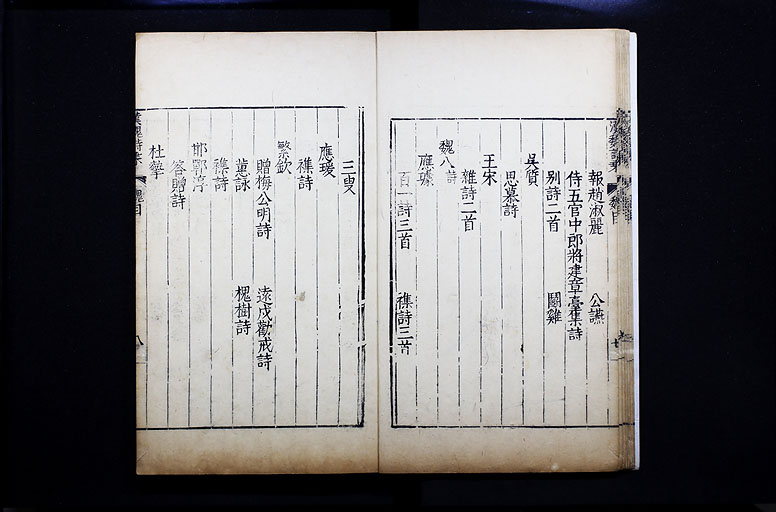 報趙淑麗 公讌
侍五官中郎將建章臺集詩
別詩二首 鬬雞
吳質
思慕詩
王宋
雜詩二首
魏八詩
應璩
百一詩三首 襍詩三首
三叟
應瑗
襍詩
繁欽
贈梅公明詩 遠戍勸戒詩
蕙詠 槐樹詩
襍詩
邯鄲淳
答贈詩
杜摯
漢魏詩
魏目
八